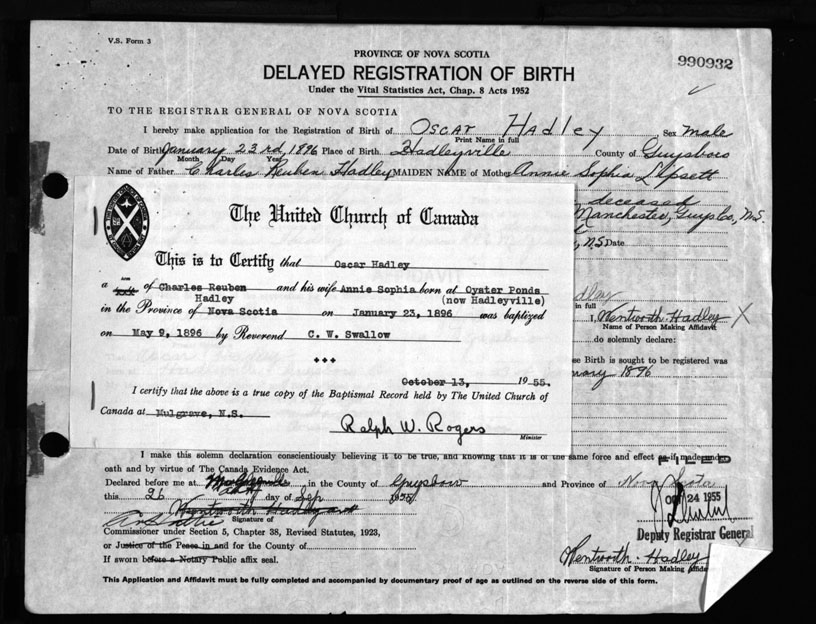 V.S. Form 3
PROVINCE OF NOVA SCOTIA
990932
DELAYED REGISTRATION OF BIRTH
Under the Vital Statistics Act, Chap. 8 Acts 1952
TO THE REGISTRAR GENERAL OF NOVA SCOTIA
I hereby make application for the Registration of Birth of Oscar Hadley Sex male
Print Name in full
Date of Birth January 23rd, 1896 Place of Birth Hadleyville County of Guysboro
Month Day Year
Name of Father Charles Reuben Hadley MAIDEN NAME of Mother Annie Sophia Lipsett
deceased
Manchester, Guys Co., N.S.
N.S. Date
The United Church of Canada
This is to Certify that Oscar Hadley
a son of Charles Reuben and his wife Annie Sophia born at Oyster Ponds
Hadley (now Hadleyville)
in the Province of Nova Scotia on January 23, 1896 was baptized
on May 9, 1896 by Reverend C. W. Swallow
October 13, 1955.
I certify that the above is a true copy of the Baptismal Record held by The United Church of
Canada at Mulgrave, N.S.
Ralph W. Rogers
Minister
in full
I, Wentworth Hadley X
Name of Person Making Affidavit
do solemnly declare:
Birth is sought to be registered was
1896
I make this solemn declaration conscientiously believing it to be true, and knowing that it is of the same force and effect as if made under
oath and by virtue of The Canada Evidence Act.
FILED
Declared before me at in the County of Guysboro and Province of Nova Scotia
this 26 day of Sep 1955
24 1955
Wentworth Hadley
Signature of
Deputy Registrar General
Commissioner under Section 5, Chapter 38, Revised Statutes, 1923,
or Justice of the Peace in and for the County of
Wentworth Hadley
If sworn before a Notary Public affix seal.
Signature of Person Making Affidavit
This Application and Affidavit must be fully completed and accompanied by documentary proof of age as outlined on the reverse side of this form.